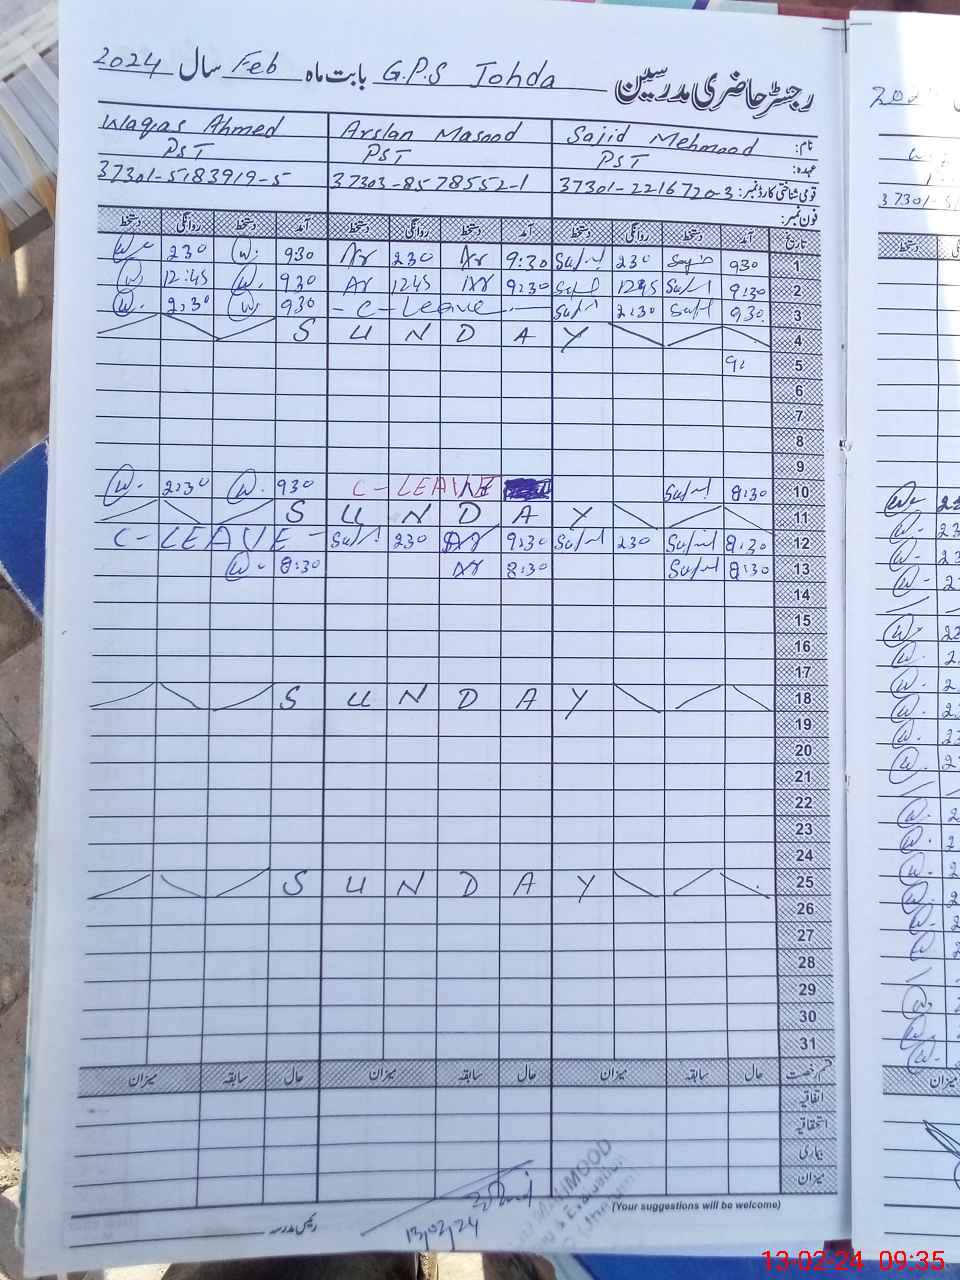 رجسٹر حاضری مدرسین G.P.S Johda بابت ماہ Feb سال 2024
نام: Sajid Mehmood Arslan Masood Waqas Ahmed
عہدہ: PST PST PST
قومی شناختی کارڈ نمبر: 37301-2216720-3 37303-8578552-1 37301-5183919-5
فون نمبر:
تاریخ آمد دستخط روانگی دستخط آمد دستخط روانگی دستخط آمد دستخط روانگی دستخط
1 930 230 9:30 Ar 230 Ar 930 W. 230 W
2 9:30 1245 9:30 Ar 1245 Ar 930 W. 12:45 W
3 930 2:30 - C - Leave 930 W 2:30 W.
4 S U N D A Y
5 9:
6
7
8
9
10 8:30 C - LEAVE 930 W. 2:30 W.
11 S U N D A Y
12 8:30 230 9:30 Ar 230 C - LEAVE -
13 8:30 8:30 Ar 8:30 W.
14
15
16
17
18 S U N D A Y
19
20
21
22
23
24
25 S U N D A Y
26
27
28
29
30
31
قسم رخصت حال سابقہ میزان حال سابقہ میزان حال سابقہ میزان
اتفاقیہ
استحقاقیہ
بیماری
میزان
(Your suggestions will be welcome)
رئیس مدرسہ
13/02/24
13-02-24 09:35